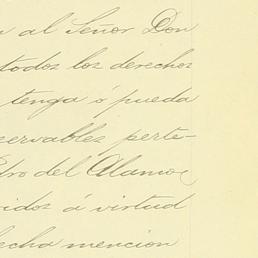 al Señor Don
todos los derechos
tenga ó pueda
servables perte-
dro del Alamo
ridos á virtud
fecha mencion